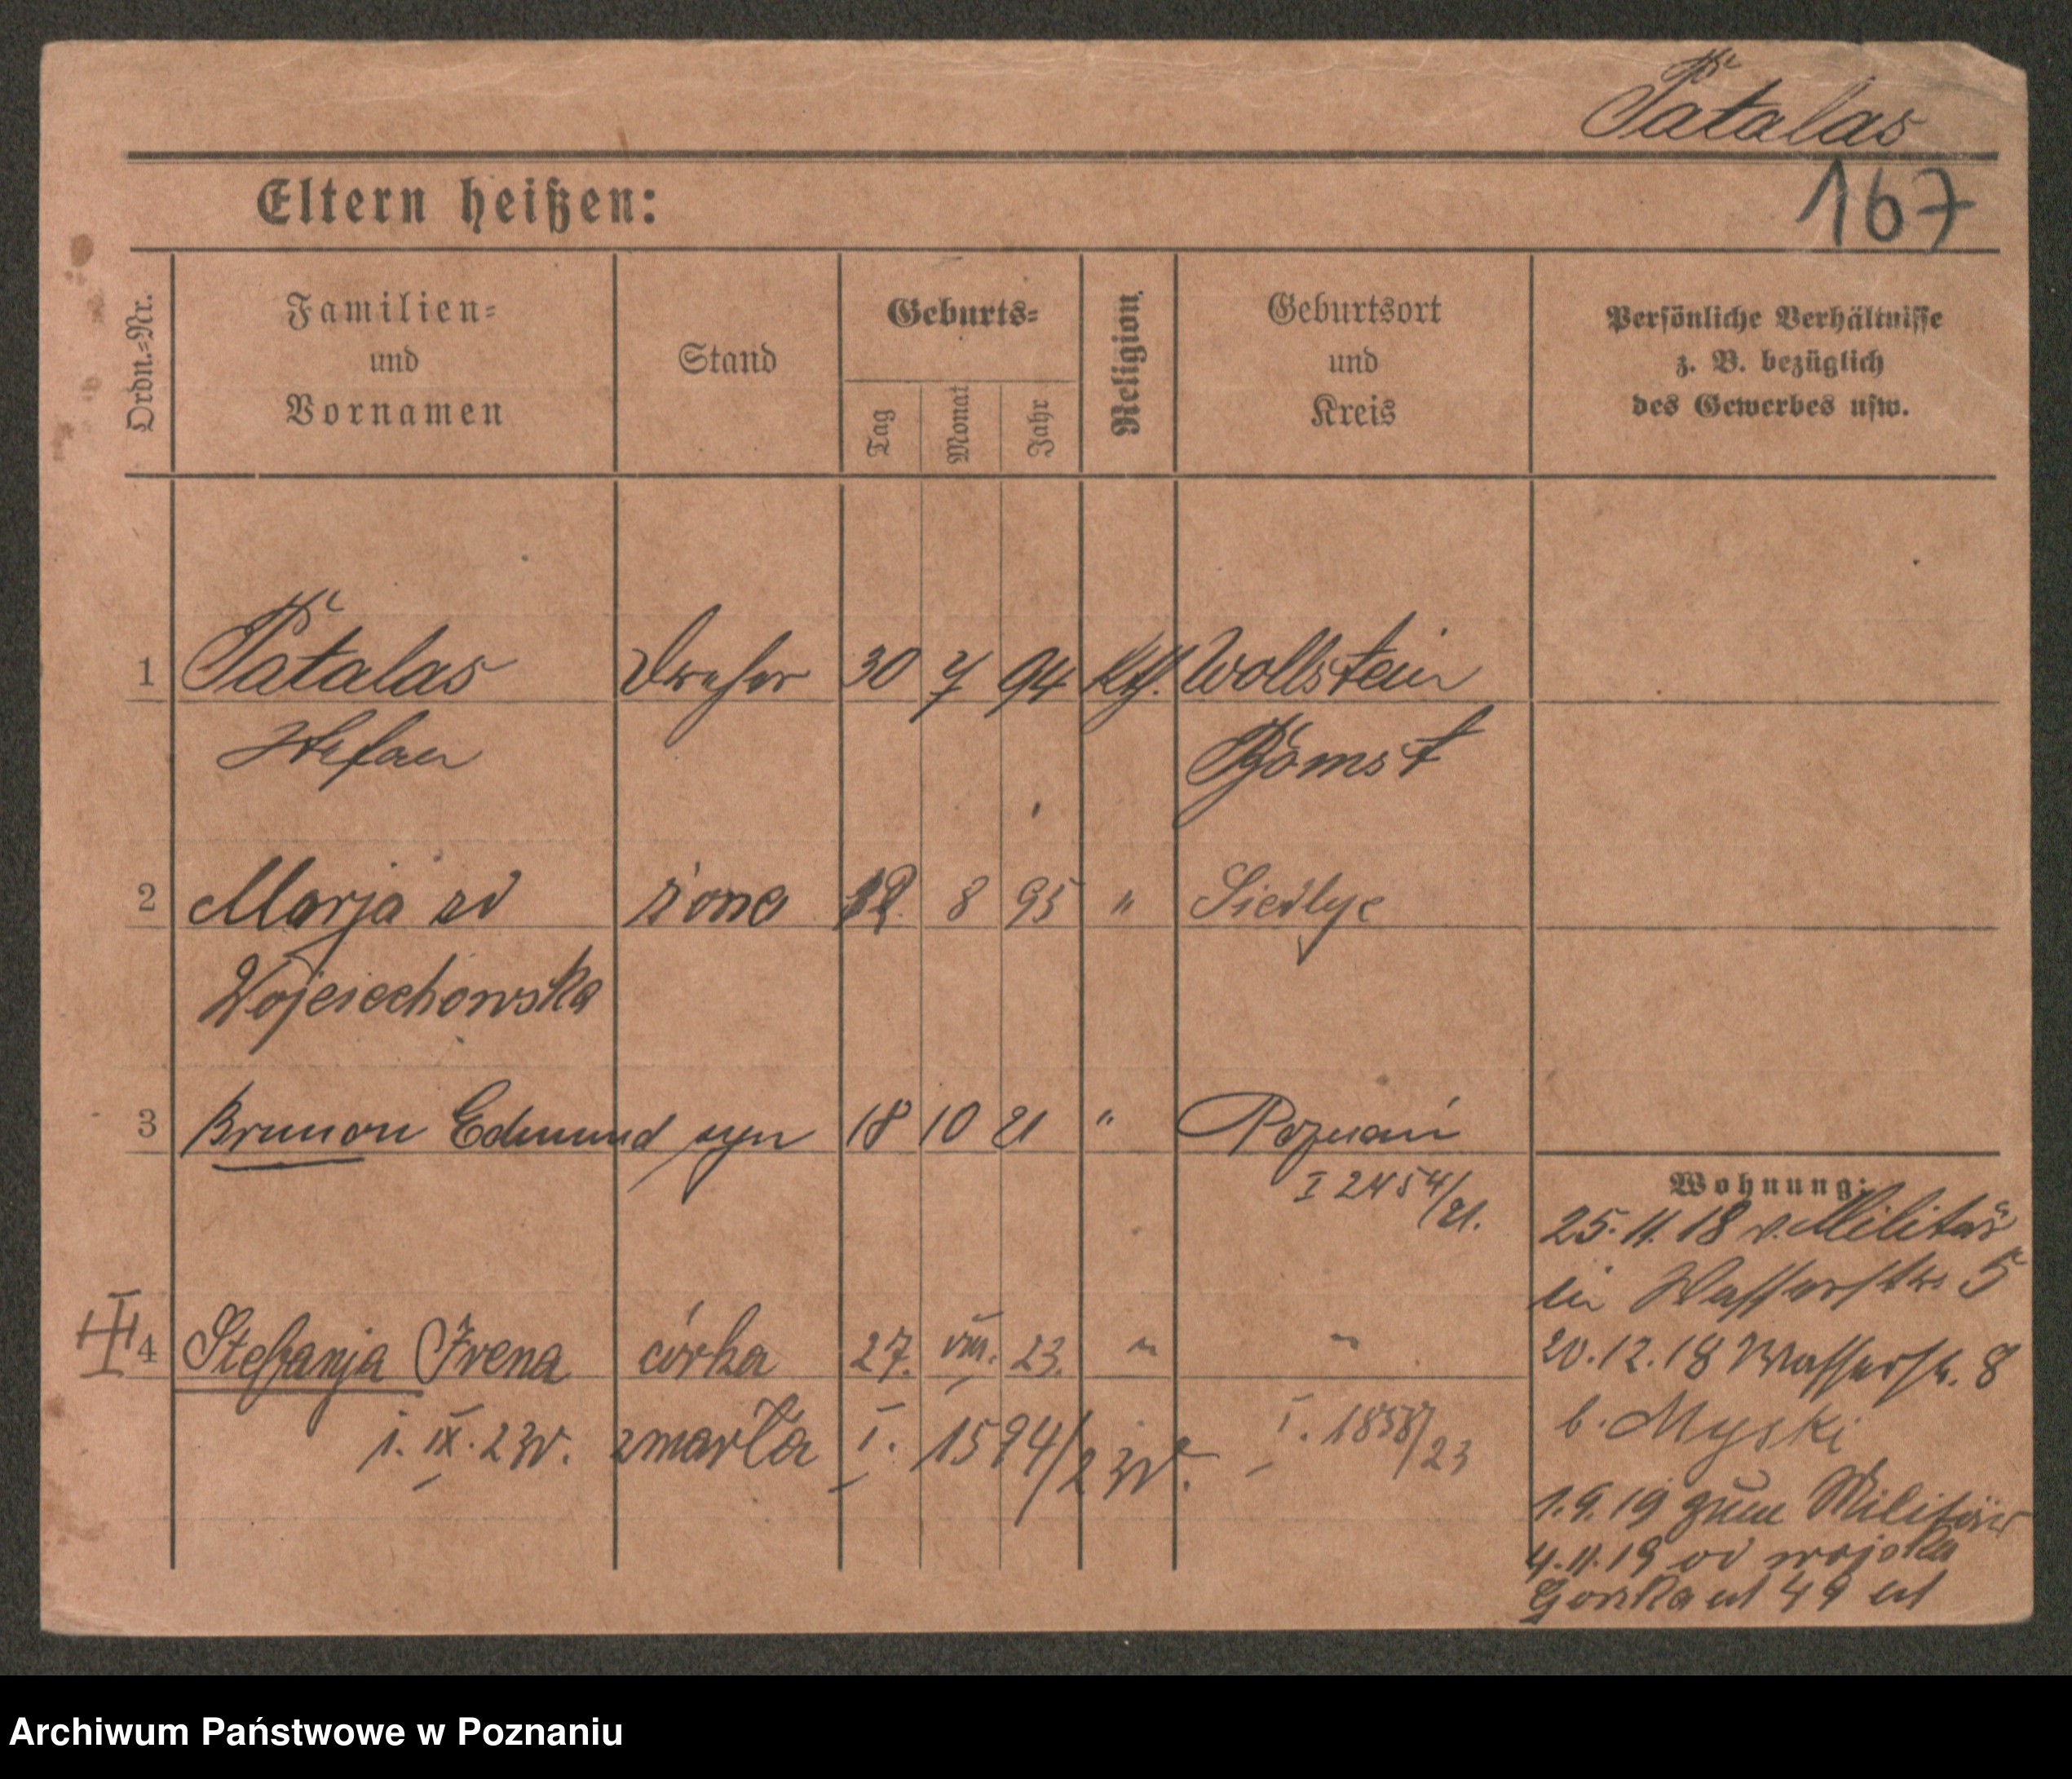 Patalas
167
Eltern heißen:
Ordn.-Nr.
Familien-
und
Vornamen
Stand
Geburts-
Tag
Monat
Jahr
Religion.
Geburtsort
und
Kreis
Persönliche Verhältnisse
z. B. bezüglich
des Gewerbes usw.
1 Patalas Dreher 30 7 94 Kth. Wollstein
Stefan Bomst
2 Marja zd żona 12 8 95 " Siedlce
Wojciechowska
3 Brunon Edmund syn 18 10 21 " Poznań
I 2454/21.
Wohnung:
25.11.18 v. Militär
in Wasserstr 5
4 Stefanja Irena córka 27. VIII. 23. " "
20.12.18 Wasserstr. 8
1. IX. 23r. zmarła I. 1594/23r. I. 1858/23
b. Myski
1.9.19 zum Militär
4.11.19 od wojska
49
Archiwum Państwowe w Poznaniu